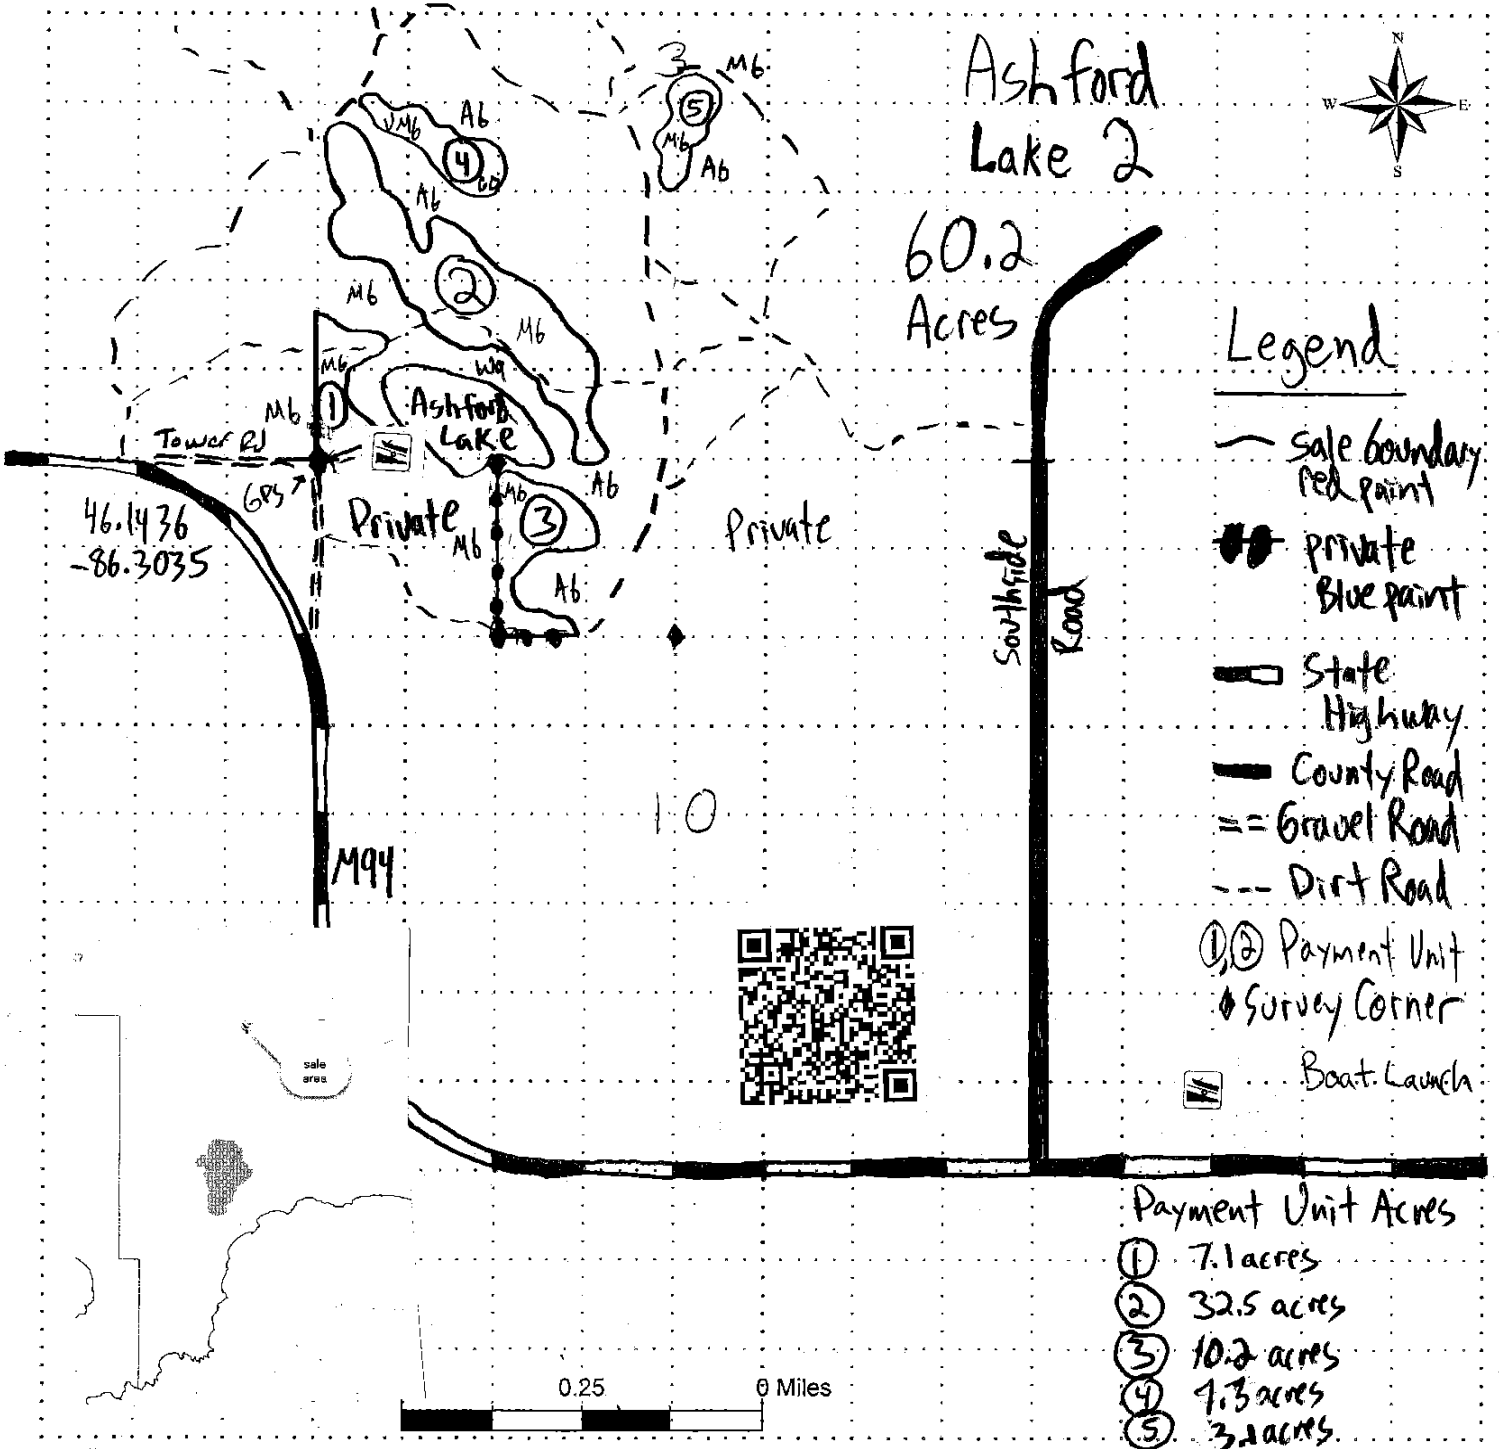 Ashford
Lake 2
60.2
Acres
N
W
E
S
3
M6
5
M6
A6
A6
UM6
4
A6
M6
2
M6
M6
1
M6
Ashford
Lake
Tower Rd
GPS
46.1436
-86.3035
Private
M6
M6
3
A6
A6
Private
Southside
Road
10
M94
sale
area
Legend
sale boundary
red paint
private
Blue paint
State
Highway
County Road
Gravel Road
Dirt Road
1,2 Payment Unit
Survey Corner
Boat Launch
Payment Unit Acres
1 7.1 acres
2 32.5 acres
3 10.2 acres
4 7.3 acres
5 3.1 acres
0.25
0 Miles